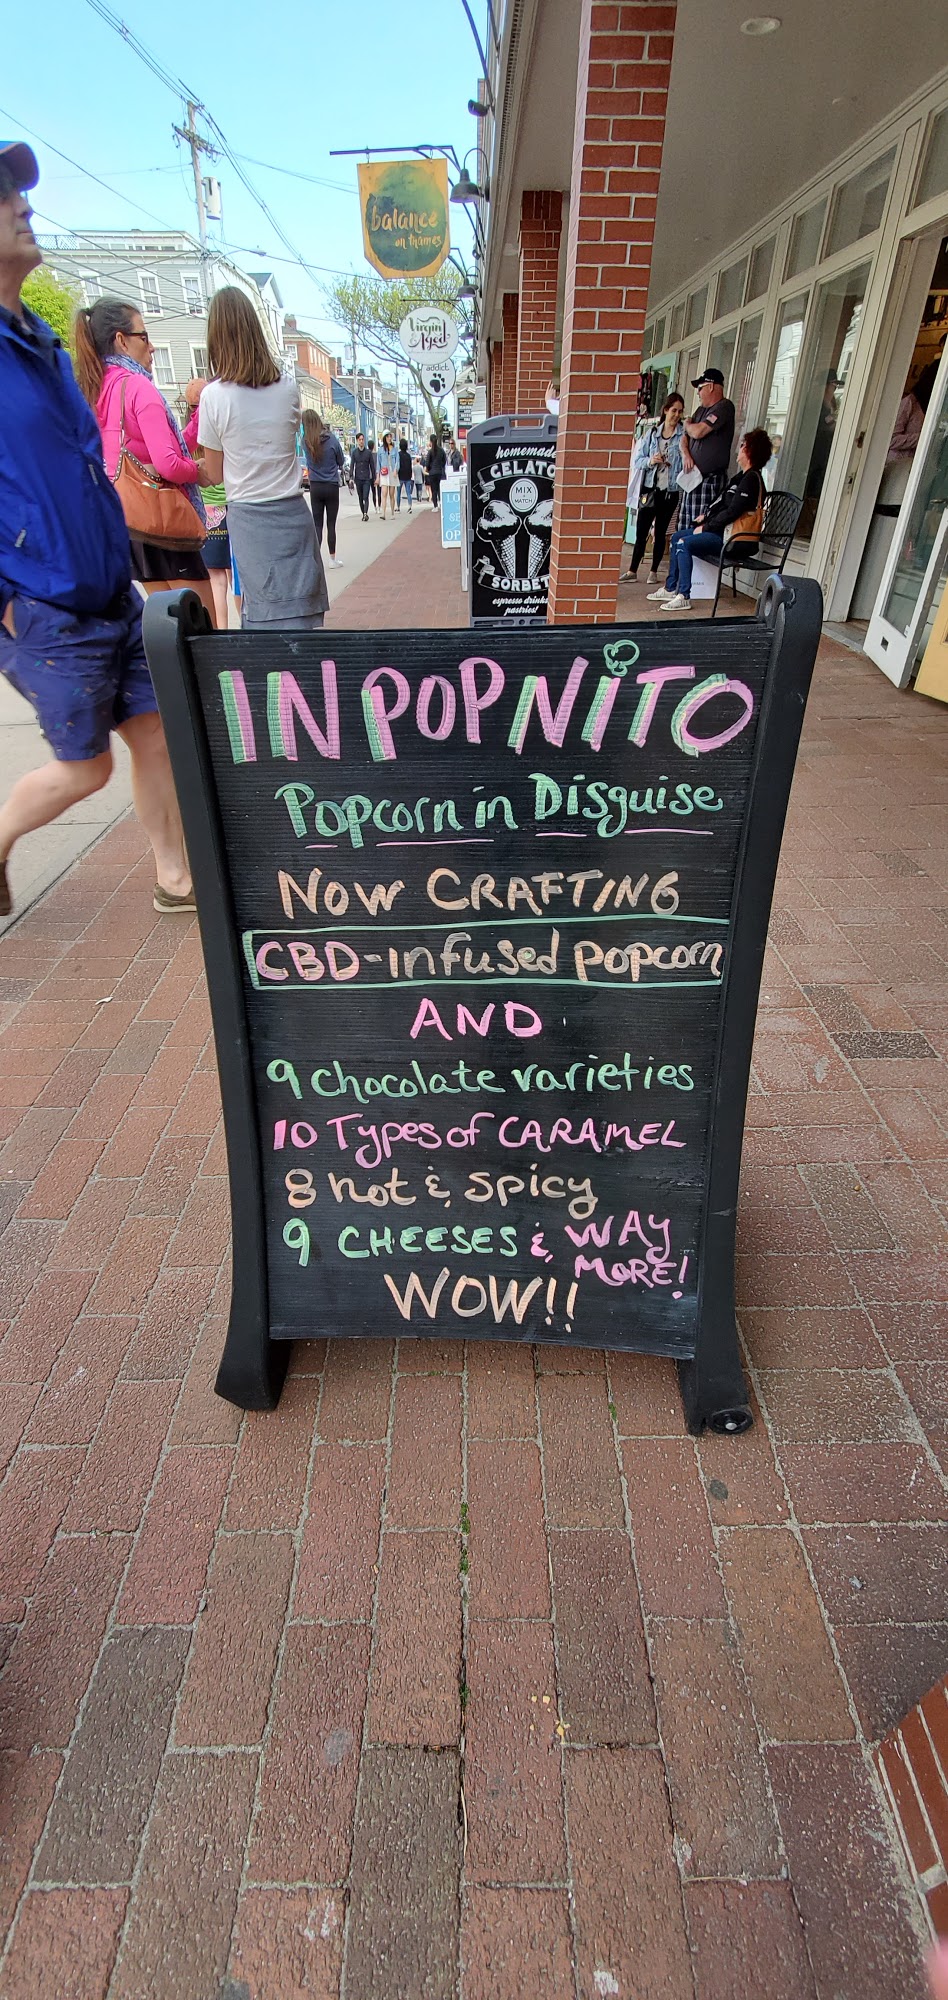 balance
on thames
Virgin
& Aged
addict
homemade
GELATO
MIX
MATCH
SORBET
espresso drinks
pastries!
INPOPNITO
Popcorn in Disguise
NOW CRAFTING
CBD-infused popcorn
AND
9 chocolate varieties
10 Types of CARAMEL
8 hot & spicy
9 CHEESES & WAY
MORE!
WOW!!